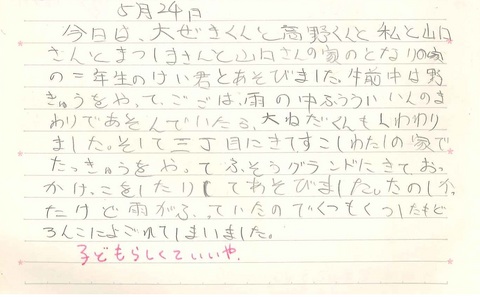 5月24日
今日は、大ぜきくんと高野くんと私と山口
さんとまつしまさんと山口さんの家のとなりの家
の二年生のけい君とあそびました。午前中は野
きゅうをやって、ごごは、雨の中ふううい いんのま
わりであそんでいたら、大ねだくんもくわわり
ました。そして三丁目にきてすこしわたしの家で
たっきゅうをやってふそうグランドにきておっ
かけっこをしたりしてあそびました。たのしかっ
たけど雨がふっていたのでくつもくつしたもど
ろんこによごれてしまいました。
子どもらしくていいや。